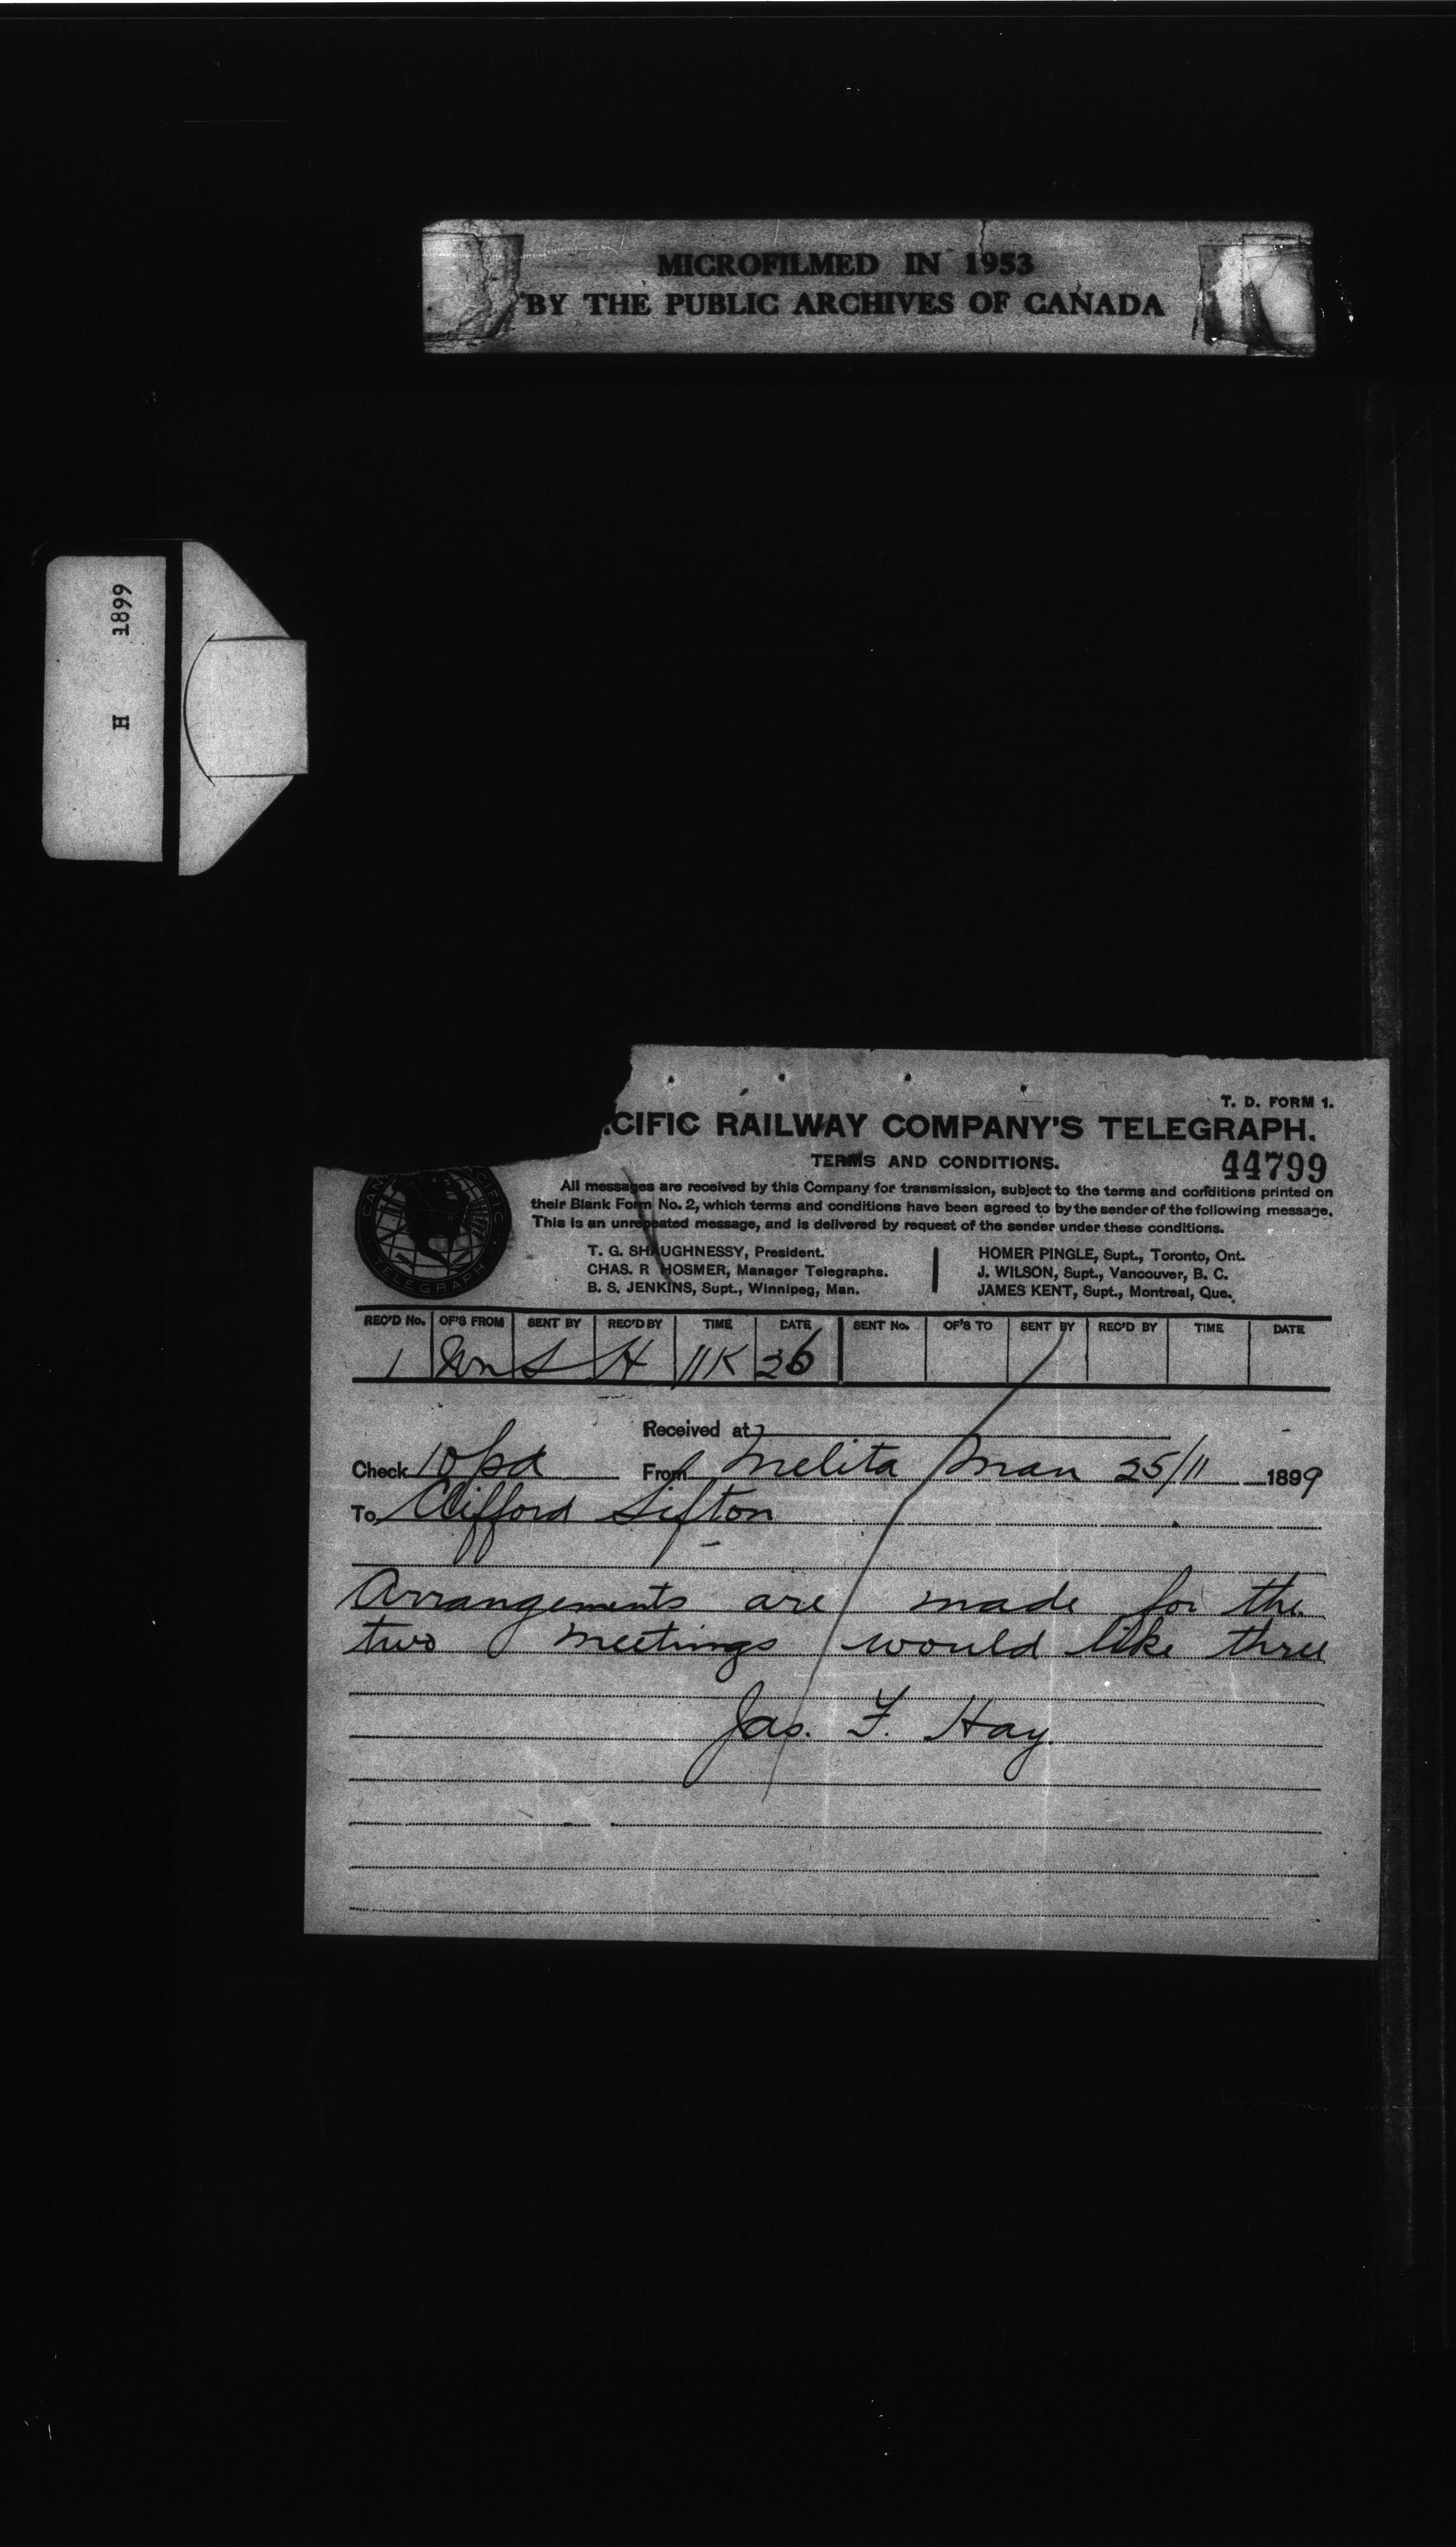 MICROFILMED IN 1953
BY THE PUBLIC ARCHIVES OF CANADA
H 1899
T. D. FORM 1.
CIFIC RAILWAY COMPANY'S TELEGRAPH.
TERMS AND CONDITIONS.
44799
All messages are received by this Company for transmission, subject to the terms and conditions printed on
their Blank Form No. 2, which terms and conditions have been agreed to by the sender of the following message.
This is an unrepeated message, and is delivered by request of the sender under these conditions.
T. G. SHAUGHNESSY, President.
CHAS. R HOSMER, Manager Telegraphs.
B. S. JENKINS, Supt., Winnipeg, Man.
HOMER PINGLE, Supt., Toronto, Ont.
J. WILSON, Supt., Vancouver, B. C.
JAMES KENT, Supt., Montreal, Que.
TELEGRAPH
REC'D No. OF'S FROM SENT BY REC'D BY TIME DATE SENT No. OF'S TO SENT BY REC'D BY TIME DATE
1 Wn S H 11K 26
Received at
Check 10 pd From Melita Man 25/11 1899
To Clifford Sifton
Arrangements are made for the
two meetings would like three
Jas. F. Hay